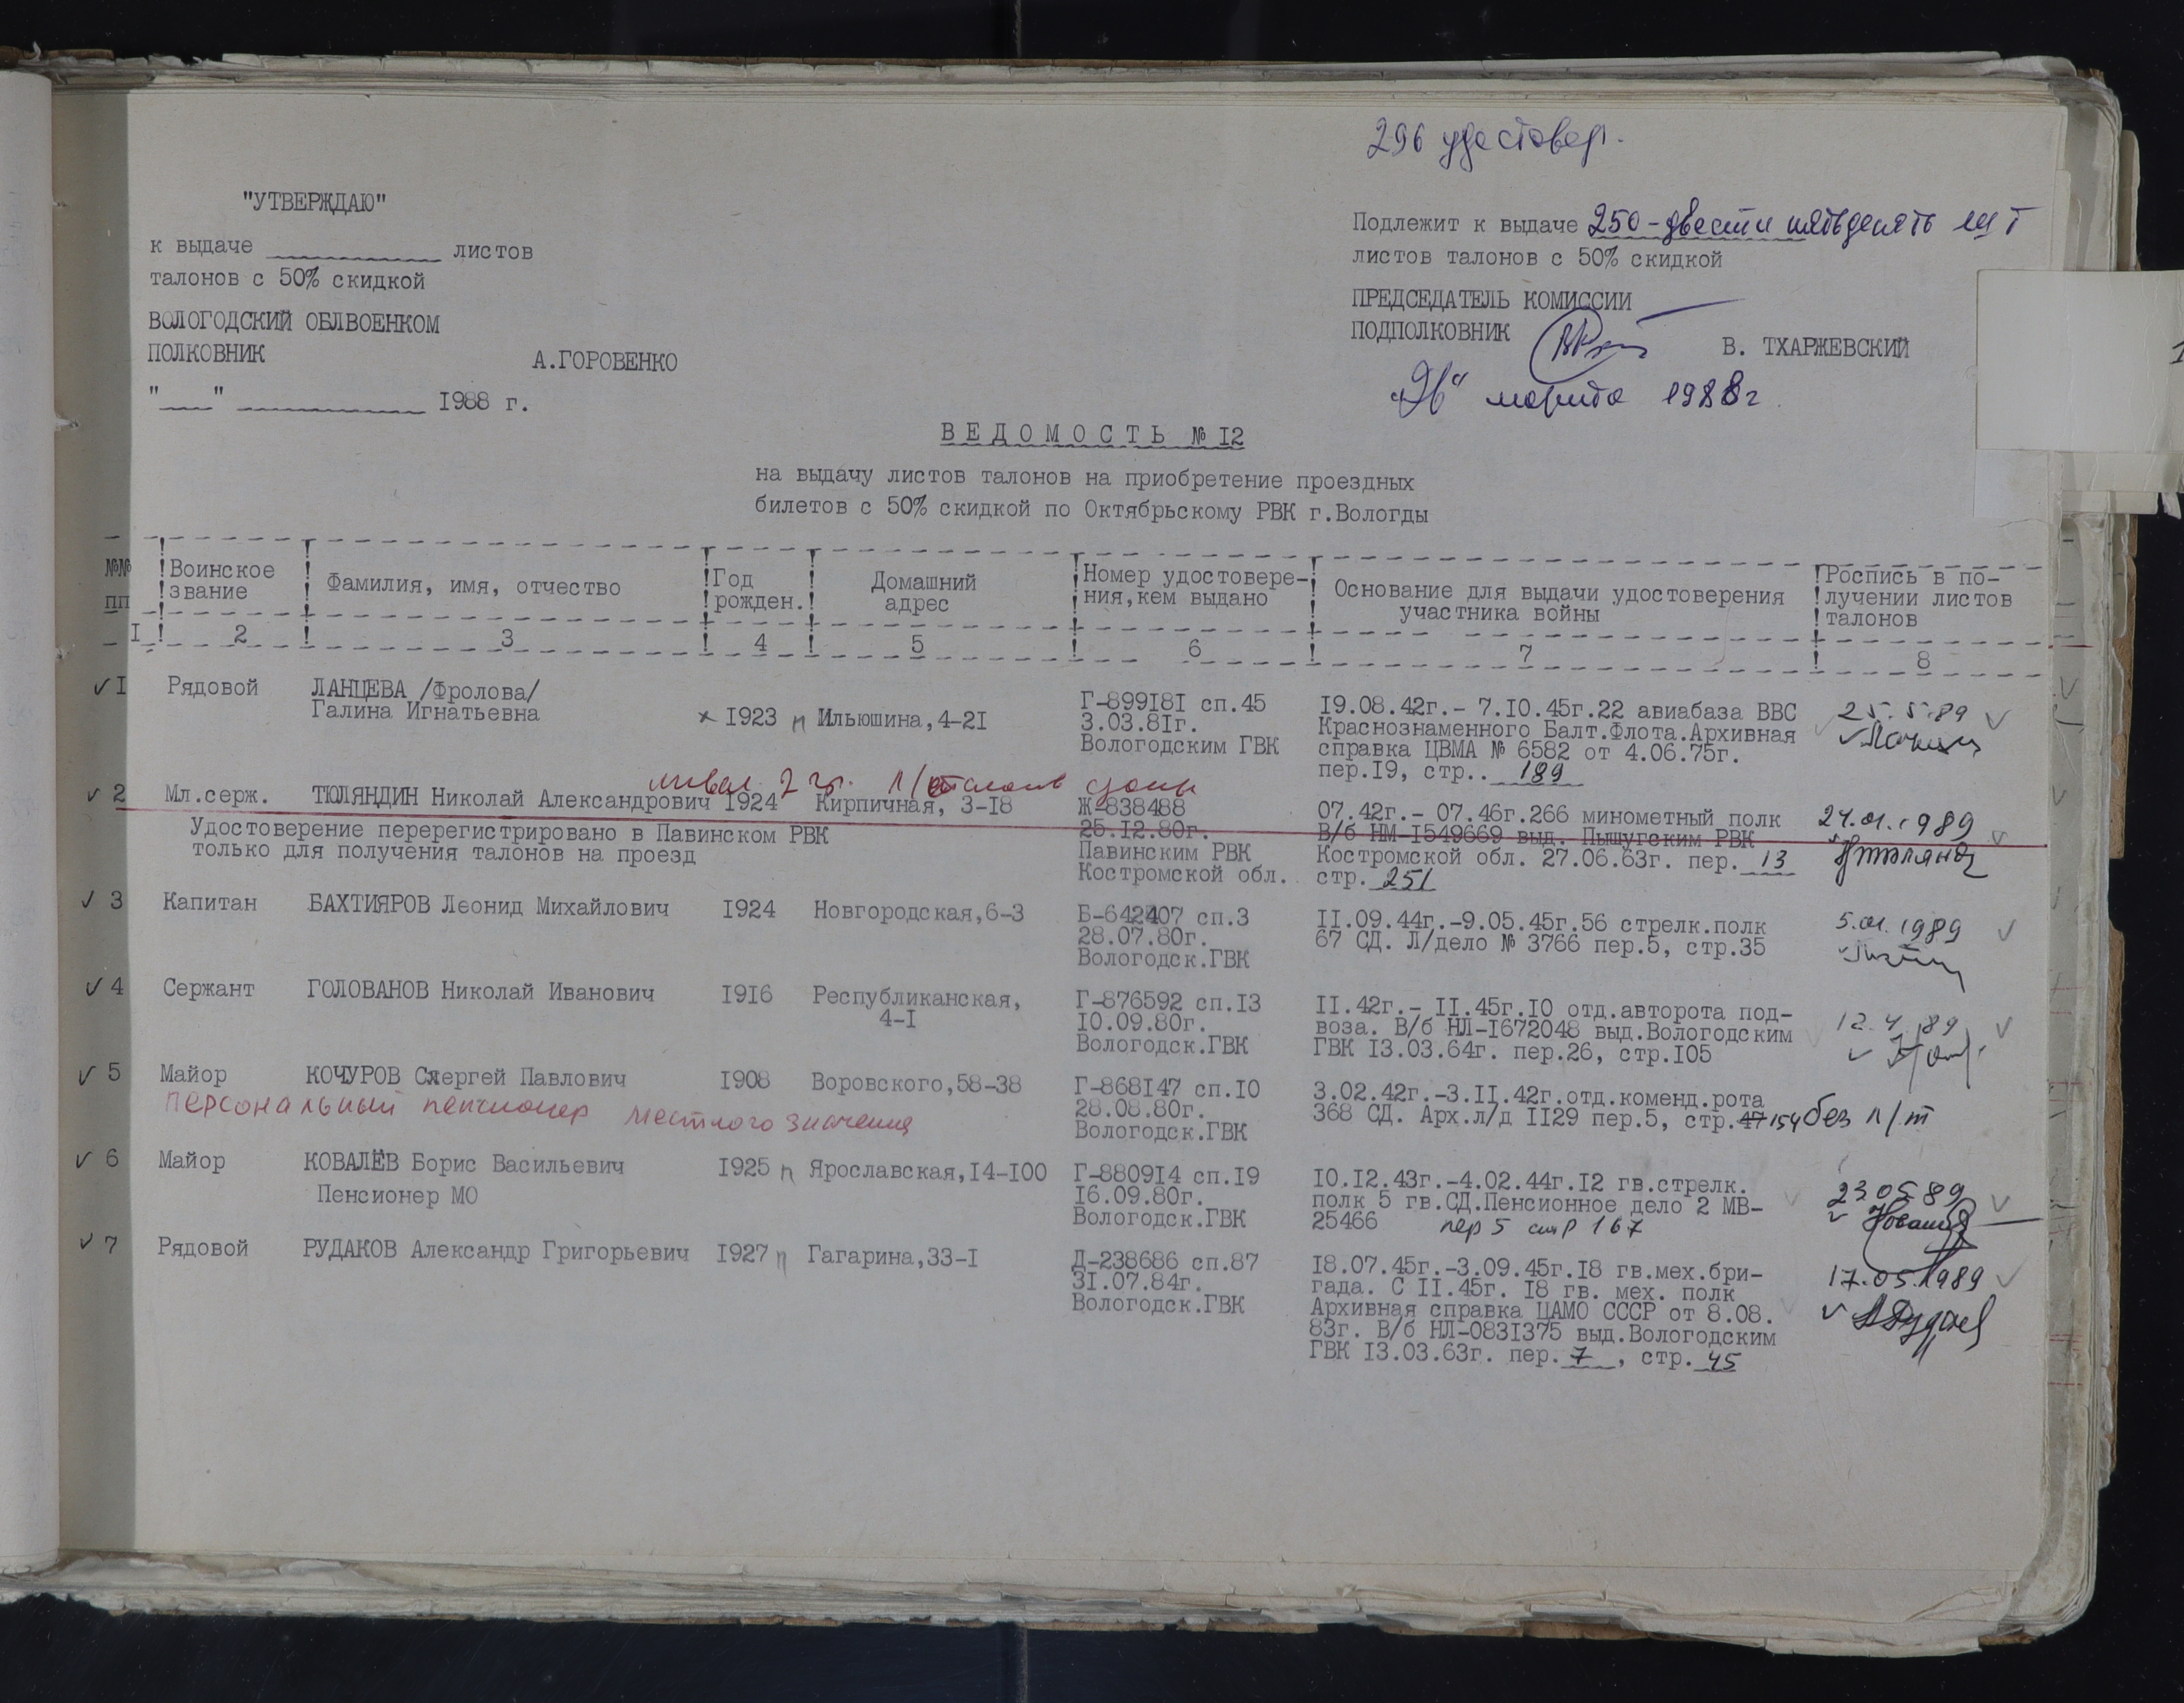 296 удостовер.
"УТВЕРЖДАЮ"
к выдаче ____________ листов
талонов с 50% скидкой
ВОЛОГОДСКИЙ ОБЛВОЕНКОМ
ПОЛКОВНИК А.ГОРОВЕНКО
"___" ____________ 1988 г.
Подлежит к выдаче 250 - двести пятьдесять шт
листов талонов с 50% скидкой
ПРЕДСЕДАТЕЛЬ КОМИССИИ
ПОДПОЛКОВНИК В. ТХАРЖЕВСКИЙ
марта 1988г.
ВЕДОМОСТЬ № 12
на выдачу листов талонов на приобретение проездных
билетов с 50% скидкой по Октябрьскому РВК г.Вологды
№№ пп
Воинское звание
Фамилия, имя, отчество
Год рожден.
Домашний адрес
Номер удостовере-
ния,кем выдано
Основание для выдачи удостоверения
участника войны
Роспись в по-
лучении листов
талонов
1 2 3 4 5 6 7 8
1 Рядовой ЛАНЦЕВА /Фролова/
Галина Игнатьевна
х 1923 п Ильюшина,4-21
Г-899181 сп.45
3.03.81г.
Вологодским ГВК
19.08.42г.- 7.10.45г.22 авиабаза ВВС
Краснознаменного Балт.Флота.Архивная
справка ЦВМА № 6582 от 4.06.75г.
пер.19, стр.. 189
25.5.89
инвал. 2 гр.
2 Мл.серж. ТЮЛЯНДИН Николай Александрович 1924 Кирпичная, 3-18
Удостоверение перерегистрировано в Павинском РВК
только для получения талонов на проезд
Ж-838488
25.12.80г.
Павинским РВК
Костромской обл.
07.42г.- 07.46г.266 минометный полк
В/б НМ-1549669 выд. Пыщугским РВК
Костромской обл. 27.06.63г. пер. 13
стр. 251
24.01.1989
3 Капитан БАХТИЯРОВ Леонид Михайлович 1924 Новгородская,6-3
Б-642407 сп.3
28.07.80г.
Вологодск.ГВК
11.09.44г.-9.05.45г.56 стрелк.полк
67 СД. Л/дело № 3766 пер.5, стр.35
5.01.1989
4 Сержант ГОЛОВАНОВ Николай Иванович 1916 Республиканская,
4-1
Г-876592 сп.13
10.09.80г.
Вологодск.ГВК
11.42г.- 11.45г.10 отд.авторота под-
воза. В/б НЛ-1672048 выд.Вологодским
ГВК 13.03.64г. пер.26, стр.105
12.4.89
5 Майор КОЧУРОВ Сергей Павлович 1908 Воровского,58-38
персональный пенсионер местного значения
Г-868147 сп.10
28.08.80г.
Вологодск.ГВК
3.02.42г.-3.11.42г.отд.коменд.рота
368 СД. Арх.л/д 1129 пер.5, стр.47 154
без л/т
6 Майор КОВАЛЁВ Борис Васильевич 1925 п Ярославская,14-100
Пенсионер МО
Г-880914 сп.19
16.09.80г.
Вологодск.ГВК
10.12.43г.-4.02.44г.12 гв.стрелк.
полк 5 гв.СД.Пенсионное дело 2 МВ-
25466 пер 5 стр 167
23.05.89
7 Рядовой РУДАКОВ Александр Григорьевич 1927 п Гагарина,33-1
Д-238686 сп.87
31.07.84г.
Вологодск.ГВК
18.07.45г.-3.09.45г.18 гв.мех.бри-
гада. С 11.45г. 18 гв. мех. полк
Архивная справка ЦАМО СССР от 8.08.
83г. В/б НЛ-0831375 выд.Вологодским
ГВК 13.03.63г. пер. 7 , стр. 45
17.05.1989